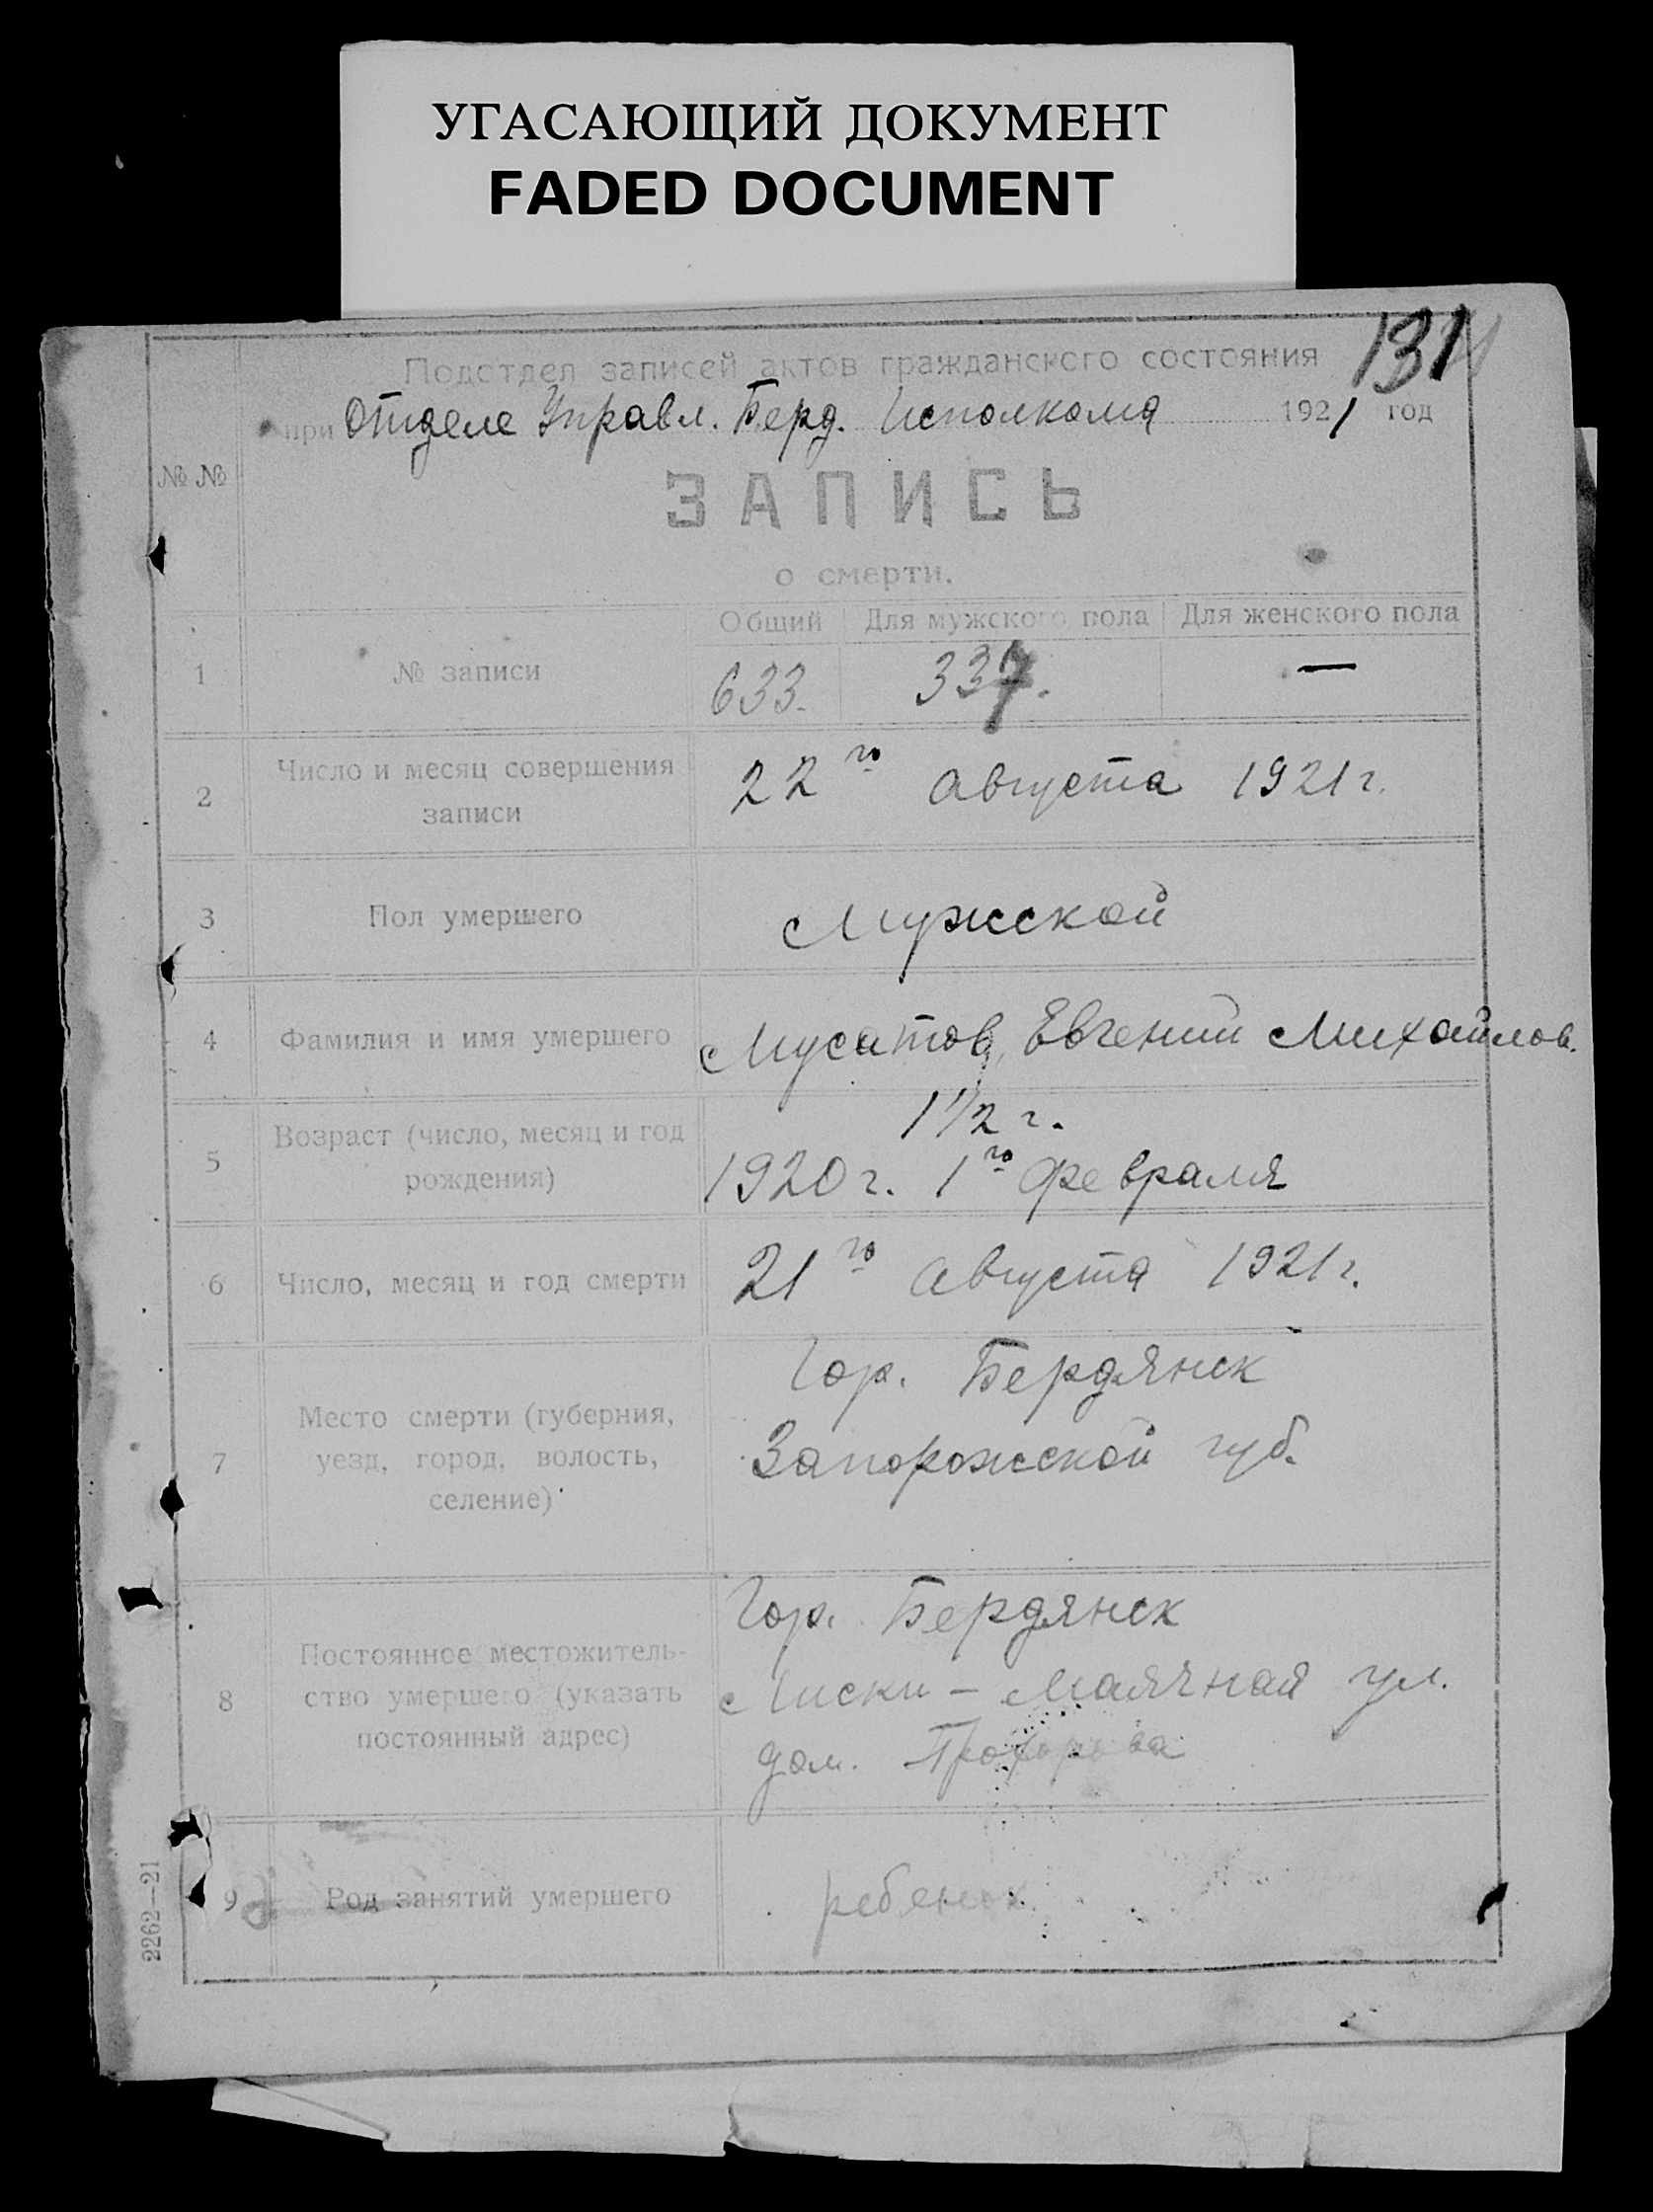 УГАСАЮЩИЙ ДОКУМЕНТ
FADED DOCUMENT
131
Подотдел записей актов гражданского состояния
при Отделе Управл. Берд. Исполкома 1921 год
№ №
ЗАПИСЬ
о смерти.
Общий Для мужского пола Для женского пола
1 № записи 633. 337. —
2 Число и месяц совершения
записи
22го августа 1921 г.
3 Пол умершего Мужской
4 Фамилия и имя умершего Мусатов, Евгений Михайлов.
5 Возраст (число, месяц и год
рождения)
1 1/2 г.
1920 г. 1го февраля
6 Число, месяц и год смерти 21го августа 1921 г.
7 Место смерти (губерния,
уезд, город, волость,
селение)
Гор. Бердянск
Запорожской губ.
8 Постоянное местожитель-
ство умершего (указать
постоянный адрес)
Гор. Бердянск
Лиски – Маячная ул.
дом. Прохорова
9 Род занятий умершего ребенок
2262—21